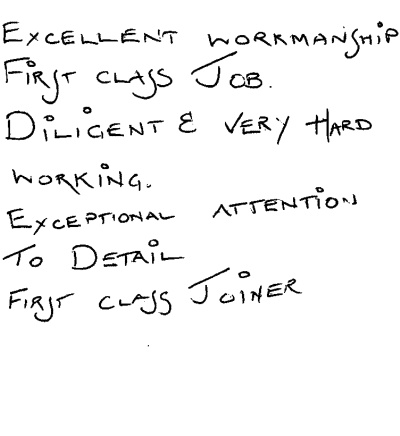 EXCELLENT WORKMANSHIP
FIRST CLASS JOB.
DILIGENT & VERY HARD
WORKING.
EXCEPTIONAL ATTENTION
TO DETAIL
FIRST CLASS JOINER